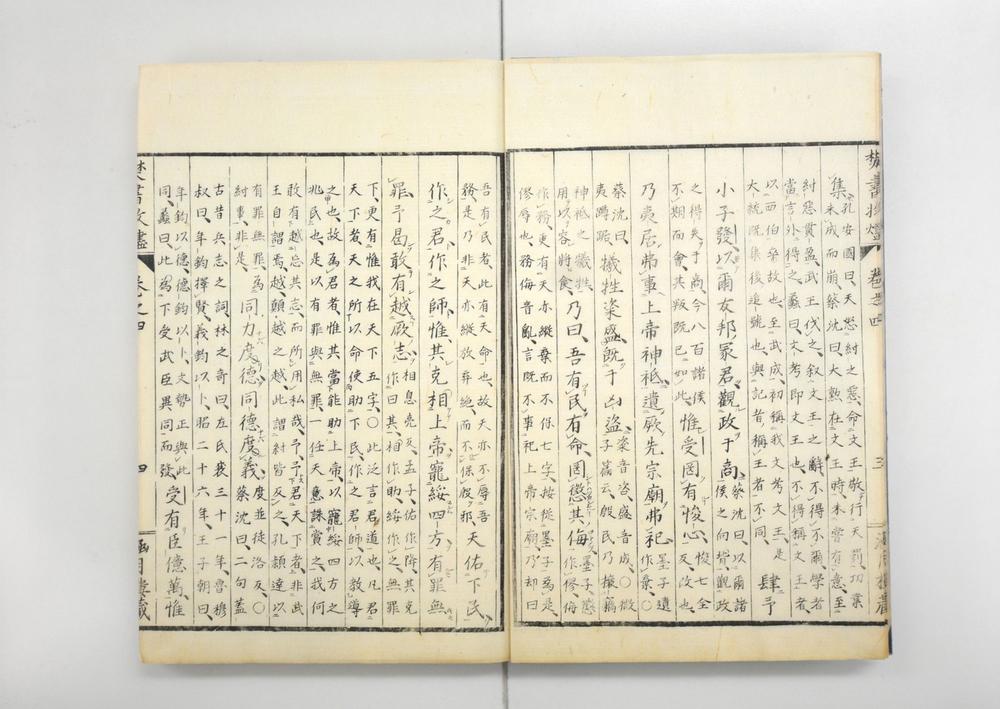 集、孔安國曰、天怒紂之惡、命文王敬行天罰、功業
未成而崩、蔡沈曰大勲在文王時、未嘗有意、至
紂惡貫盈、武王伐之、叙文王之辭、不得不爾、學者
當言外得之、燾曰、文考即文王也、不得稱文王者、
以西伯亲故也、至武成、初稱我文考文王、是
大統既集後追號也、與記者稱王者不同、 肆予
小子發、以爾友邦冢君、觀政于商、蔡沈曰以爾諸
侯之向背、觀政
之得失于商、今八百諸侯
不期而會、其叛既已如此、惟受罔有悛心、悛七全
反、改也、
乃夷居、弗事上帝神祇、遺厥先宗廟弗祀、墨子遺
作棄、○
蔡沈曰、
夷蹲踞、犧牲粢盛、既于凶盜、粢音咨、盛音成、○微
子篇云、殷民乃攘竊
神祇之犧牲
用以容、將食、乃曰、吾有民、有命、罔懲其侮、墨子、懲
作修、侮
作務、更有天亦縱棄而不保七字、按從墨子為是、
修辱也、務侮音亂、言既不事祀上帝宗廟、乃却曰
吾有民者、此有天命也、故天亦不辱吾
務、是乃非天亦縱放棄絶、而不保殷邪、天佑下民、
作之君、作之師、惟其克相上帝、寵綏四方、有罪無
罪、予曷敢有越厥志、相息亮反、孟子佑作降、其克
作曰其、相作助、綏作之、無罪
下、更有惟我在天下五字、○此泛言君道也、凡君
天下者、天之所以命使助下民、作之君師、以教導
之也、故為君者、惟其當能助上帝、以寵綏四方之
兆民也、是以有罪與無罪、一任天意誅賞之、我何
敢有越忘其志、而所用私哉、予、予君天下者、非武
王自謂焉、越顛越之越、此謂紂皆反之、孔穎達以
有罪無罪、為
紂事、非是、 同力度德、同德度義、度並徒洛反、○
蔡沈曰、二句蓋
古昔兵志之詞、林之奇曰、左氏襄三十一年、魯穆
叔曰、年鈞擇賢、義鈞以卜、昭二十六年、王子朝曰、
年鈞以德、德鈞以卜、文勢正與此
同、燾曰、此為下受武臣異同而張、受有臣億萬、惟
卷之四
四